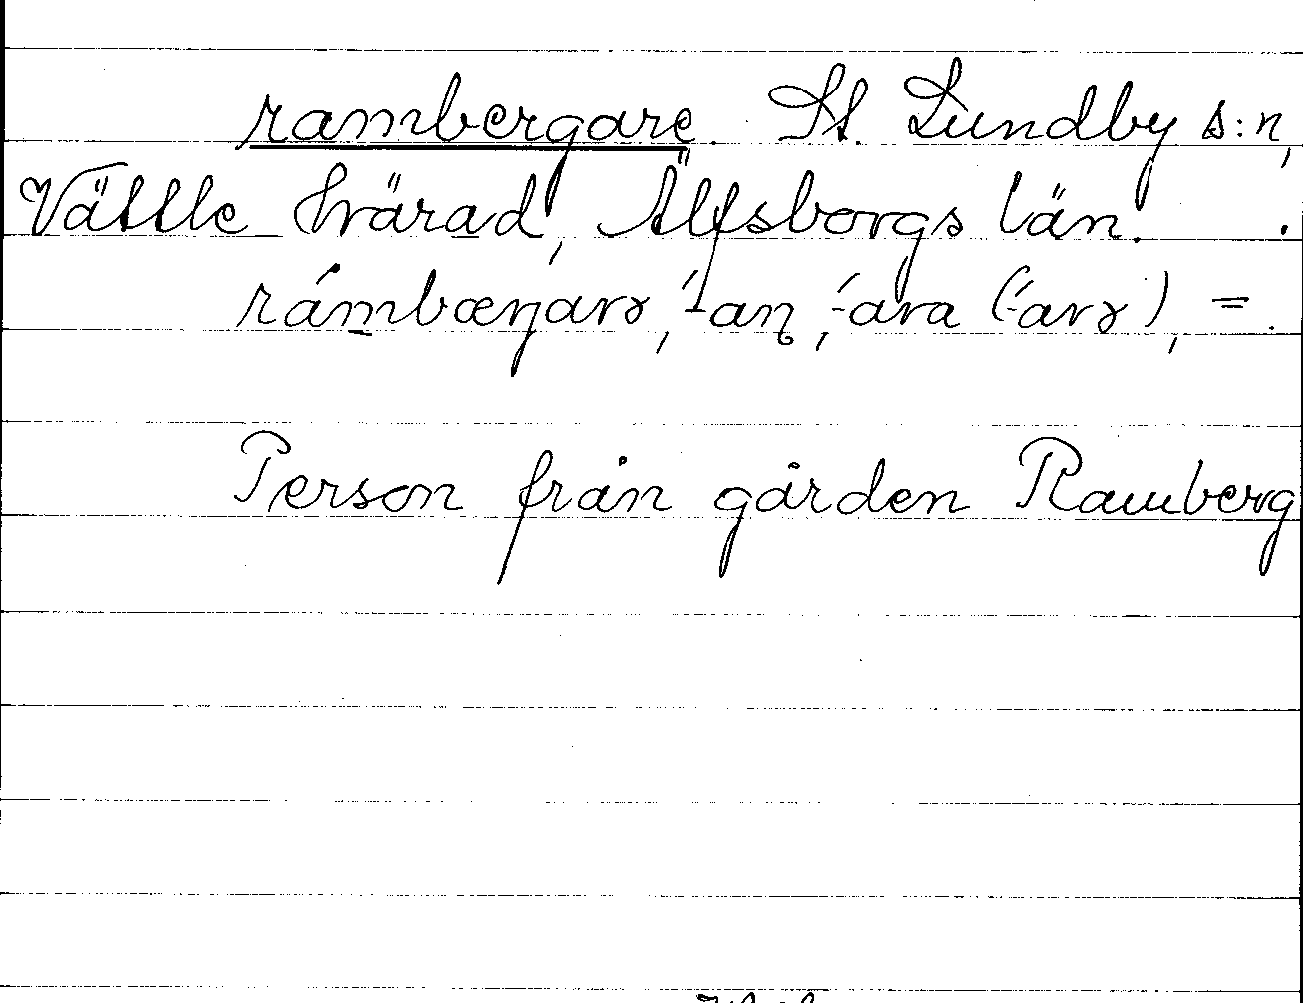 rambergare. St. Lundby s:n,
Vättle härad, Älfsborgs län.
rámbœŋarə, ́-an, ́-ara (́-arə), =.
Person från gården Ramberg